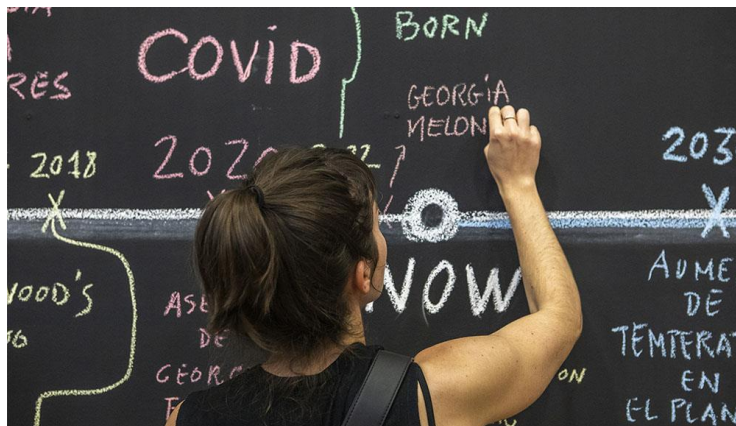 RES
COVID
BORN
GEORGIA
MELON
2018
2020
NOW
WOOD'S
ASE
DE
GEOR
ON
203
AUME
DE
TEMPERAT
EN
EL PLAN